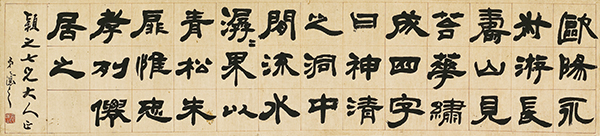 歐陽永
叔游長
壽山見
苔華繡
成四字
曰神清
之洞中
閒流水
潺〻界以
青松朱
扉惟忠
孝列僊
居之
穎之七兄大人正
弟